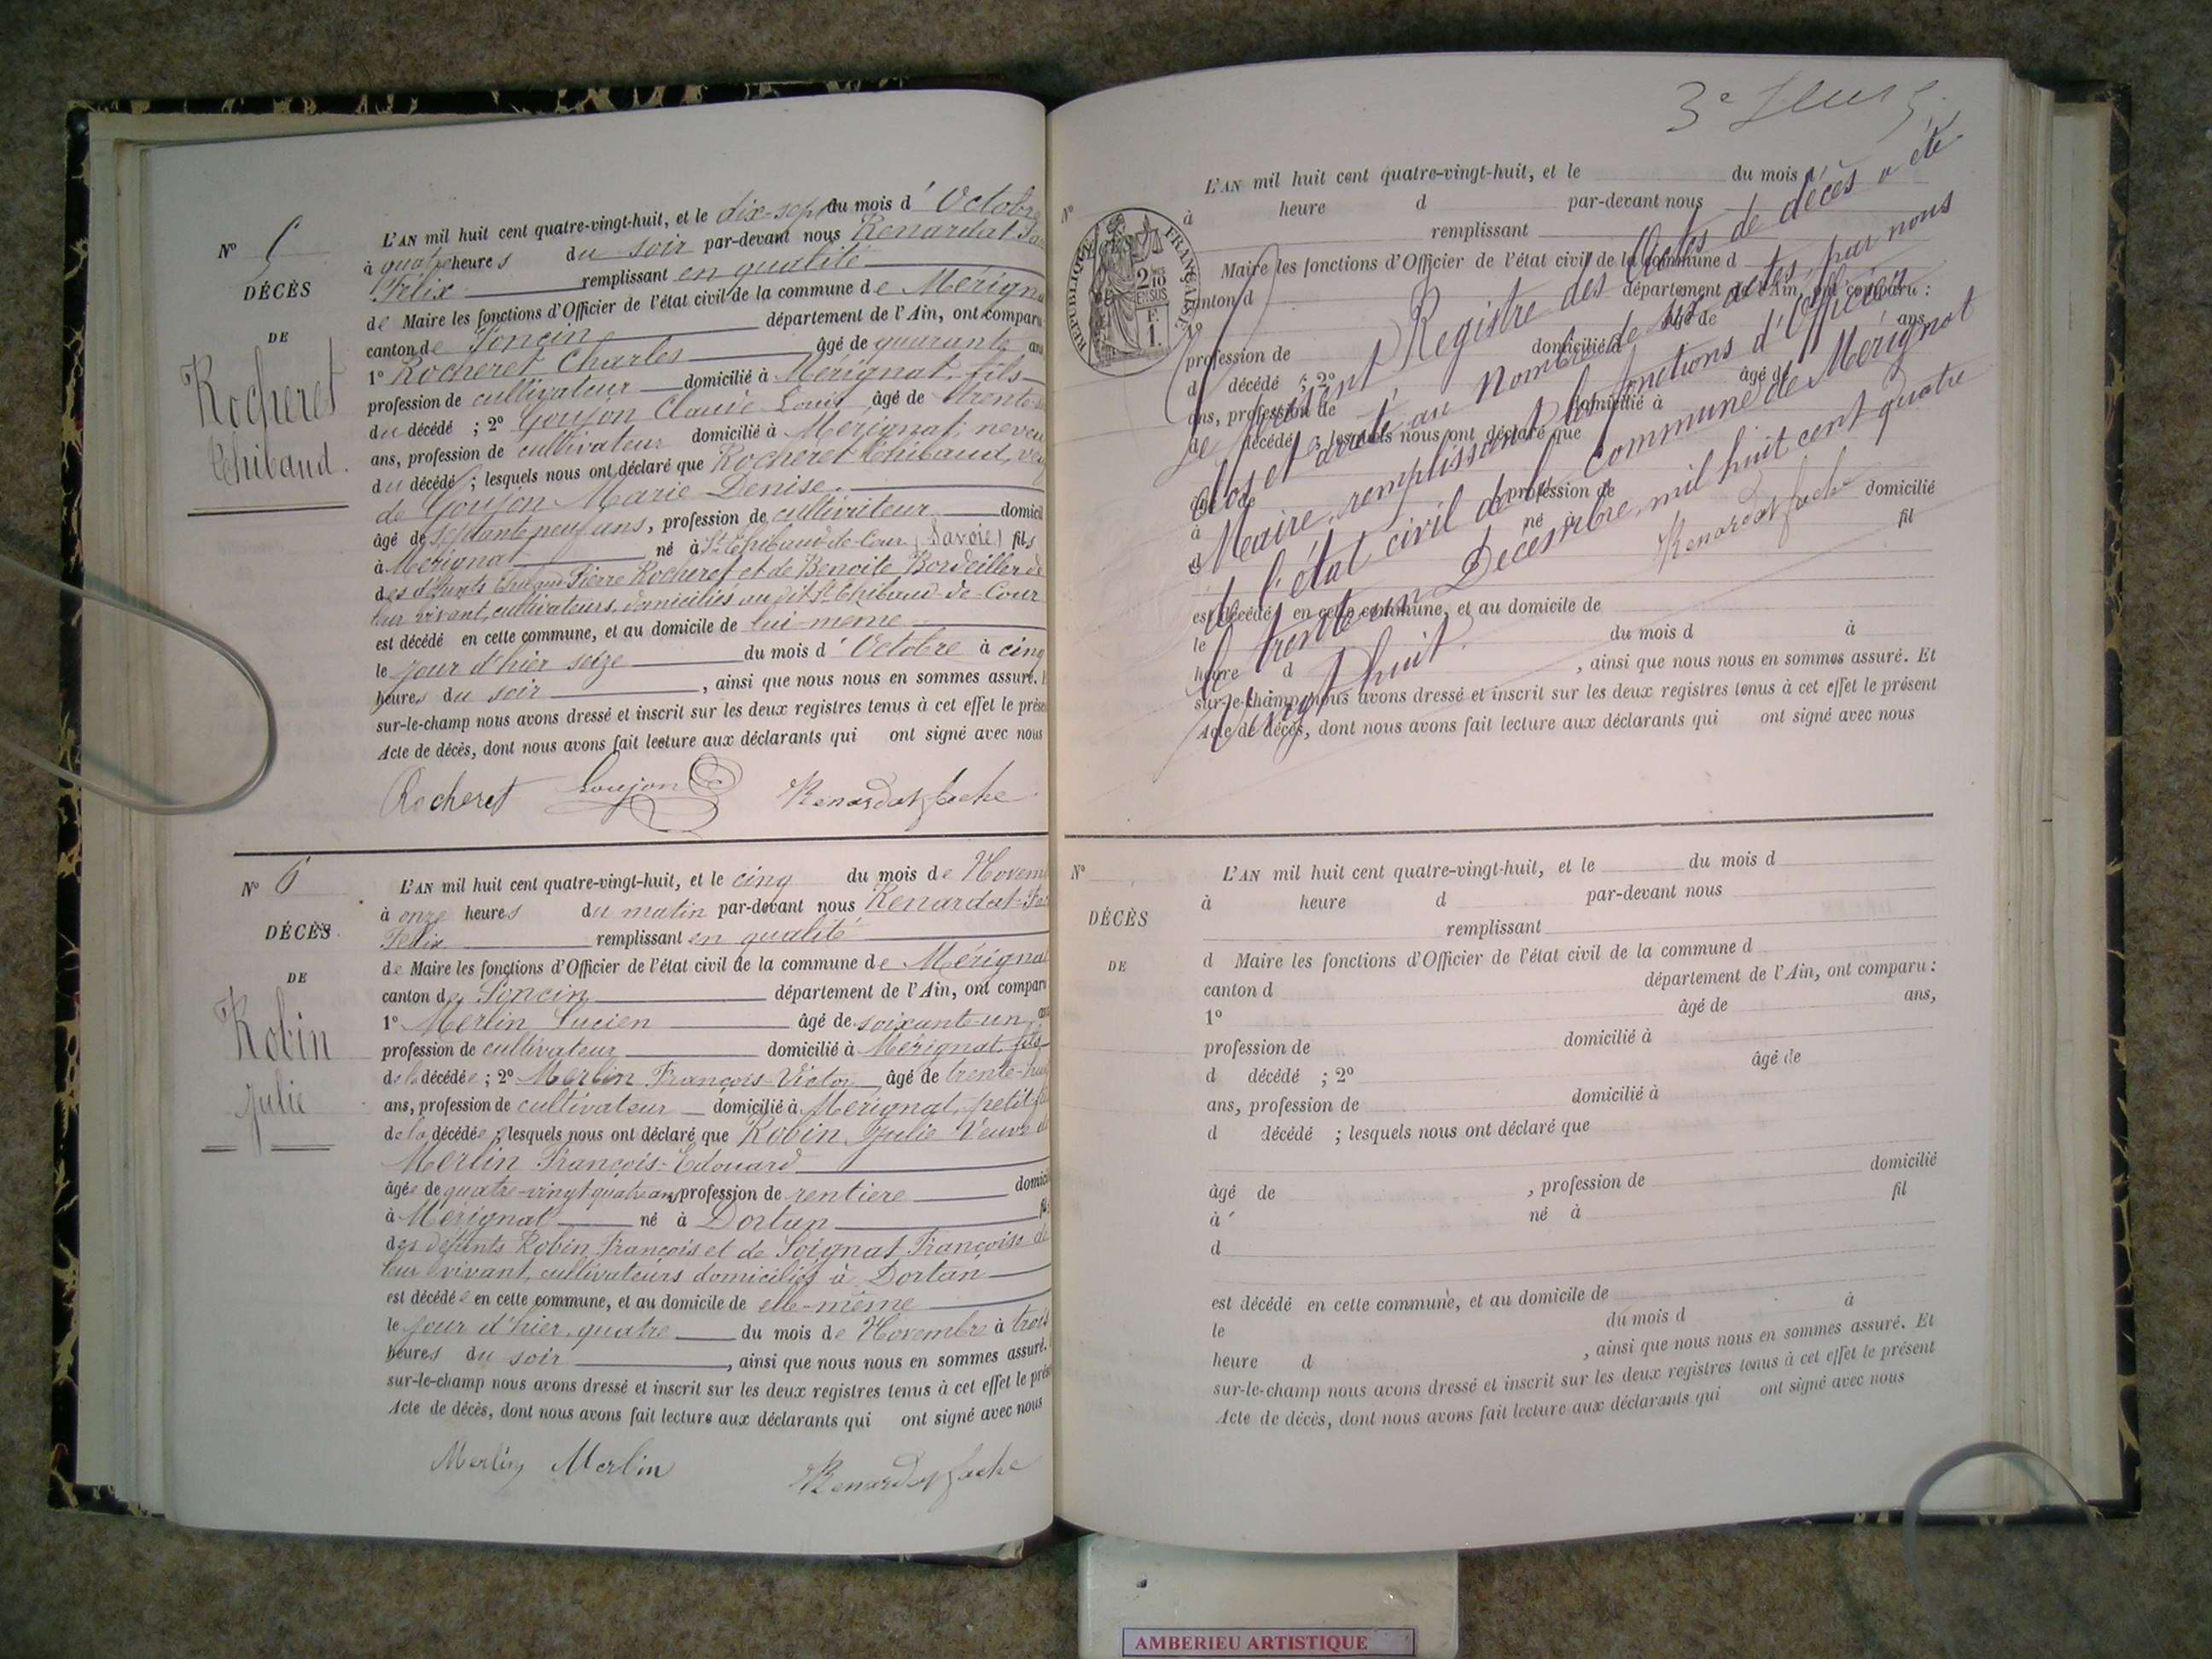 N° 5
DÉCÈS
DE
Rocheret
Thibaud.
L'AN mil huit cent quatre-vingt-huit, et le dix-sept du mois d'Octobre
à quatre heures du soir par-devant nous Renardat
Félix remplissant en qualité
de Maire les fonctions d'Officier de l'état civil de la commune de Mérignat
canton de Poncin département de l'Ain, ont comparu
1° Rocheret Charles âgé de quarante ans
profession de cultivateur domicilié à Mérignat, fils
du décédé ; 2° Goujon Claude Louis âgé de trente
ans, profession de cultivateur domicilié à Mérignat, neveu
du décédé ; lesquels nous ont déclaré que Rocheret Thibaud, veuf
de Goujon Marie Denise.
âgé de septante neuf ans, profession de cultivateur domicil
à Mérignat né à St Thibaud-de-Cour (Savoie) fils
des défunts Pierre Rocheret et de Benoite Bordeiller de
leur vivant, cultivateurs, domiciliés au dit St Thibaud-de-Cour
est décédé en cette commune, et au domicile de lui-même
le jour d'hier seize du mois d'Octobre à cinq
heures du soir , ainsi que nous nous en sommes assuré.
sur-le-champ nous avons dressé et inscrit sur les deux registres tenus à cet effet le présent
Acte de décès, dont nous avons fait lecture aux déclarants qui ont signé avec nous
Rocheret Goujon Renardat fache
N° 6
DÉCÈS
DE
Robin
Julie
L'AN mil huit cent quatre-vingt-huit, et le cinq du mois de Novem
à onze heures du matin par-devant nous Renardat-Fa
Félix remplissant en qualité
de Maire les fonctions d'Officier de l'état civil de la commune de Mérignat
canton de Poncin département de l'Ain, ont comparu
1° Merlin Lucien âgé de soixante-un ans
profession de cultivateur domicilié à Mérignat, fils
de la décédée ; 2° Merlin François-Victor âgé de trente-huit
ans, profession de cultivateur domicilié à Mérignat, petit fils
de la décédée ; lesquels nous ont déclaré que Robin Julie Veuve de
Merlin François-Edouard
âgée de quatre-vingt quatre ans, profession de rentière domicil
à Mérignat né à Dortan fil
des défunts Robin François et de Soignat Françoise de
leur vivant, cultivateurs domiciliés à Dortan
est décédée en cette commune, et au domicile de elle-même
le jour d'hier, quatre du mois de Novembre à trois
heures du soir , ainsi que nous nous en sommes assuré.
sur-le-champ nous avons dressé et inscrit sur les deux registres tenus à cet effet le présent
Acte de décès, dont nous avons fait lecture aux déclarants qui ont signé avec nous
Merlin Merlin Renardat fache
3e
N°
RÉPUBLIQUE FRANÇAISE
2/10 EN SUS
F. 1.
L'AN mil huit cent quatre-vingt-huit, et le du mois d
à heure d par-devant nous
remplissant
Maire les fonctions d'Officier de l'état civil de la commune d
canton d département de l'Ain, ont comparu :
1° âgé de ans
profession de domicilié à
d décédé ; 2° âgé de
ans, profession de domicilié à
d décédé ; lesquels nous ont déclaré que
âgé de profession de domicilié
à né à fil
d
est décédé en cette commune, et au domicile de
le du mois d à
heure d , ainsi que nous nous en sommes assuré. Et
sur-le-champ nous avons dressé et inscrit sur les deux registres tenus à cet effet le présent
Acte de décès, dont nous avons fait lecture aux déclarants qui ont signé avec nous
Le présent Registre des Actes de décès a été
clos et arrêté au nombre de six actes, par nous
Maire, remplissant les fonctions d'Officier
de l'état civil de la commune de Mérignat
le trente-un Décembre mil huit cent quatre
vingt huit.
Renardat fache
N°
DÉCÈS
DE
L'AN mil huit cent quatre-vingt-huit, et le du mois d
à heure d par-devant nous
remplissant
d Maire les fonctions d'Officier de l'état civil de la commune d
canton d département de l'Ain, ont comparu :
1° âgé de ans,
profession de domicilié à
d décédé ; 2° âgé de
ans, profession de domicilié à
d décédé ; lesquels nous ont déclaré que
âgé de , profession de domicilié
à né à fil
d
est décédé en cette commune, et au domicile de
le du mois d à
heure d , ainsi que nous nous en sommes assuré. Et
sur-le-champ nous avons dressé et inscrit sur les deux registres tenus à cet effet le présent
Acte de décès, dont nous avons fait lecture aux déclarants qui ont signé avec nous
AMBERIEU ARTISTIQUE